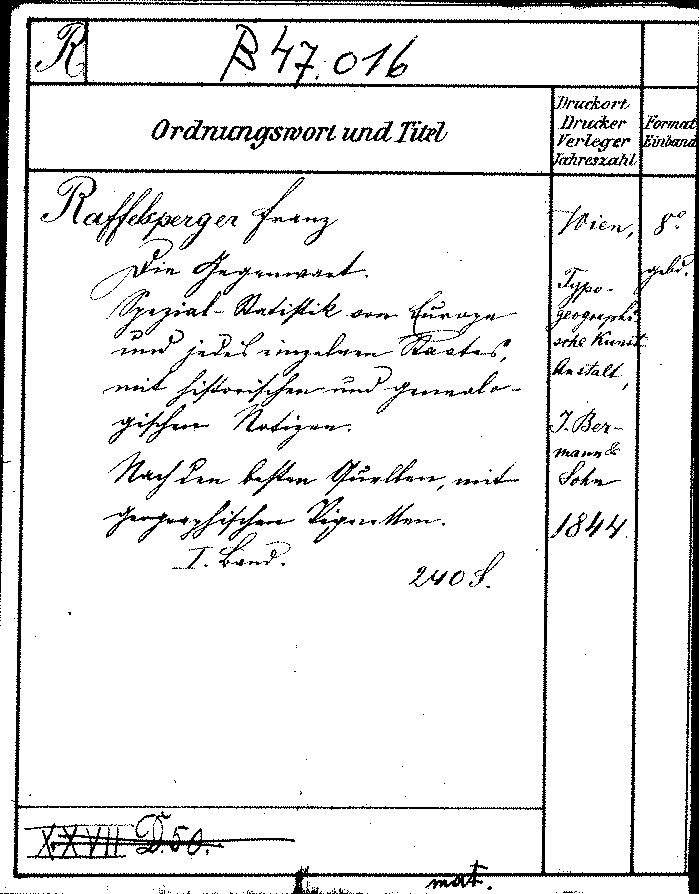 R
B 47.016
Ordnungswort und Titel
Druckort
Drucker
Verleger
Jahreszahl
Format
Einband
Raffelsperger Franz
Die Gegenwart.
Spezial-Statistik von Europa
und jedes einzelnen Staates,
mit historischen und genealo-
gischen Notizen.
Nach den besten Quellen, mit
geographischen Vignetten.
I. Band.
240 S.
Wien,
Typo-
geographi-
sche Kunst
Anstalt,
J. Ber-
mann &
Sohn
1844
8°
gebd.
XXVII D.50.
mat.